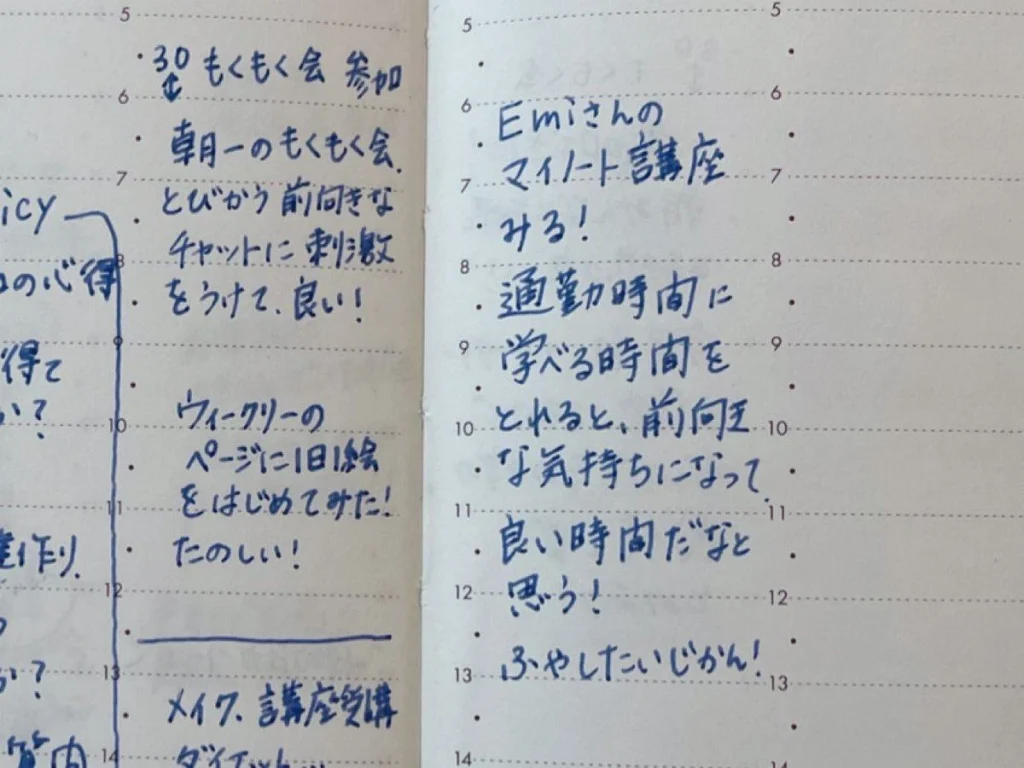 icy
の心得
得て
か?
作り
か?
質内
5
6
7
8
9
10
11
12
13
14
30 もくもく会 参加
朝一のもくもく会、
とびかう前向きな
チャットに刺激
をうけて、良い!
ウィークリーの
ページに1日1絵
をはじめてみた!
たのしい!
メイク、講座受講
ダイエット…
5
6
7
8
9
10
11
12
13
14
Emiさんの
マイノート講座
みる!
通勤時間に
学べる時間を
とれると、前向き
な気持ちになって、
良い時間だなと
思う!
ふやしたいじかん!
5
6
7
8
9
10
11
12
13